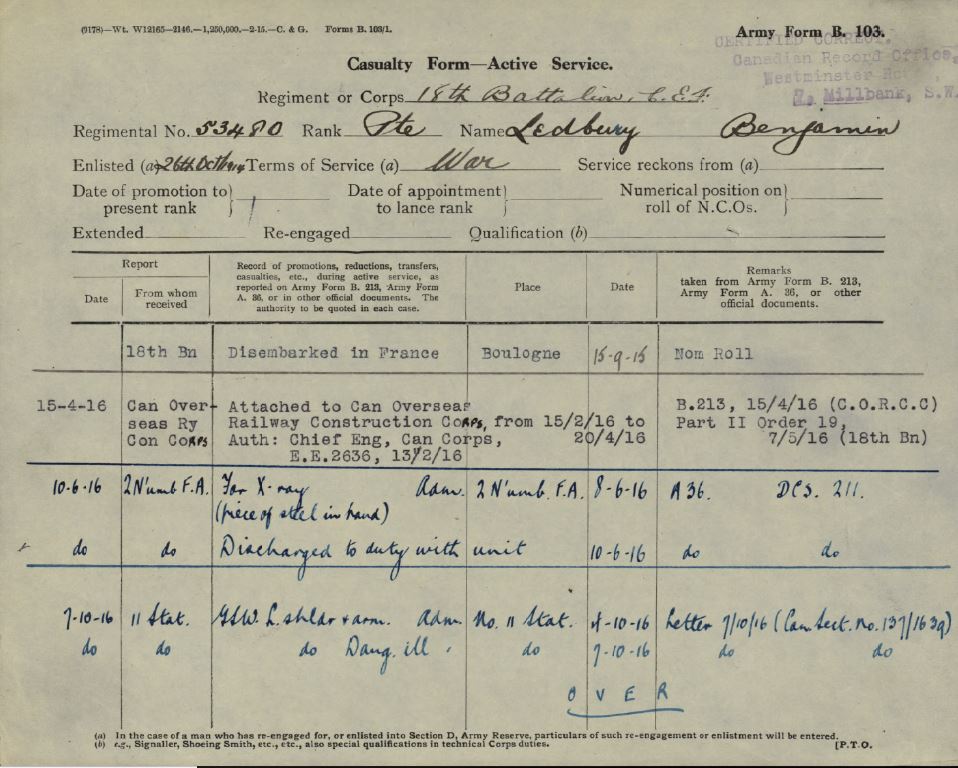 (9178)—Wt. W12165—2146.—1,250,000.—2-15.—C. & G. Forms B. 103/1.
Army Form B. 103.
CERTIFIED CORRECT.
Canadian Record Office,
Westminster
7, Millbank, S.W.
Casualty Form—Active Service.
Regiment or Corps 18th Battalion, C.E.F.
Regimental No. 53480 Rank Pte Name Ledbury Benjamin
Enlisted (a) 26th Oct 1914 Terms of Service (a) War Service reckons from (a)
Date of promotion to present rank } Date of appointment to lance rank } Numerical position on roll of N.C.Os. }
Extended Re-engaged Qualification (b)
Report
Date
From whom received
Record of promotions, reductions, transfers,
casualties, etc., during active service, as
reported on Army Form B. 213, Army Form
A. 36, or in other official documents. The
authority to be quoted in each case.
Place
Date
Remarks
taken from Army Form B. 213,
Army Form A. 36, or other
official documents.
18th Bn Disembarked in France Boulogne 15-9-15 Nom Roll
15-4-16 Can Over- Attached to Can Overseas B.213, 15/4/16 (C.O.R.C.C)
seas Ry Railway Construction Corps, from 15/2/16 to Part II Order 19,
Con Corps Auth: Chief Eng, Can Corps, 20/4/16 7/5/16 (18th Bn)
E.E.2636, 13/2/16
10-6-16 2 N'umb F.A. For X-ray Adm. 2 N'umb. F.A. 8-6-16 A 36. DCS. 211.
(piece of steel in hand)
do do Discharged to duty with unit 10-6-16 do do
7-10-16 11 Stat. GSW. L. shldr & arm. Adm. No. 11 Stat. 4-10-16 Letter 7/10/16 (Can. Sect. No. 137/1639)
do do do Dang. ill. do 7-10-16 do do
OVER
(a) In the case of a man who has re-engaged for, or enlisted into Section D, Army Reserve, particulars of such re-engagement or enlistment will be entered.
(b) e.g., Signaller, Shoeing Smith, etc., etc., also special qualifications in technical Corps duties. [P.T.O.